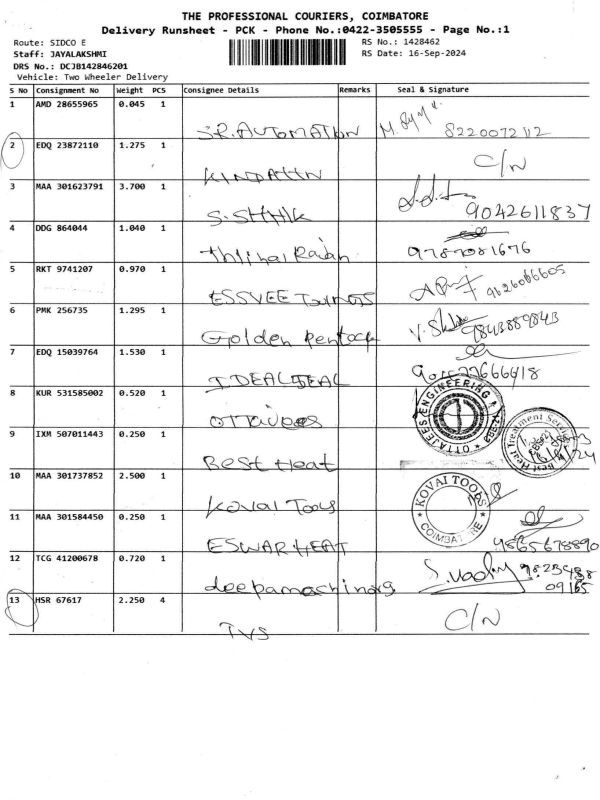 THE PROFESSIONAL COURIERS, COIMBATORE
Delivery Runsheet - PCK - Phone No.:0422-3505555 - Page No.:1
Route: SIDCO E
RS No.: 1428462
Staff: JAYALAKSHMI
RS Date: 16-Sep-2024
DRS No.: DCJB142846201
Vehicle: Two Wheeler Delivery
S No Consignment No Weight PCS Consignee Details Remarks Seal & Signature
1 AMD 28655965 0.045 1 S.R.AUTOMATION
2 EDQ 23872110 1.275 1 C/N
3 MAA 301623791 3.700 1 9042611837
4 DDG 864044 1.040 1 9787081676
5 RKT 9741207 0.970 1 ESSVEE
6 PMK 256735 1.295 1 Golden 9843889843
7 EDQ 15039764 1.530 1 IDEAL
8 KUR 531585002 0.520 1 OTTAJEES ENGINEERING
9 IXM 507011443 0.250 1 Best Heat Best Heat Treatment
10 MAA 301737852 2.500 1 Kovai Tools KOVAI TOOLS COIMBATORE
11 MAA 301584450 0.250 1 ESWAR HEAT 9865678890
12 TCG 41200678 0.720 1
13 HSR 67617 2.250 4 TVS C/N